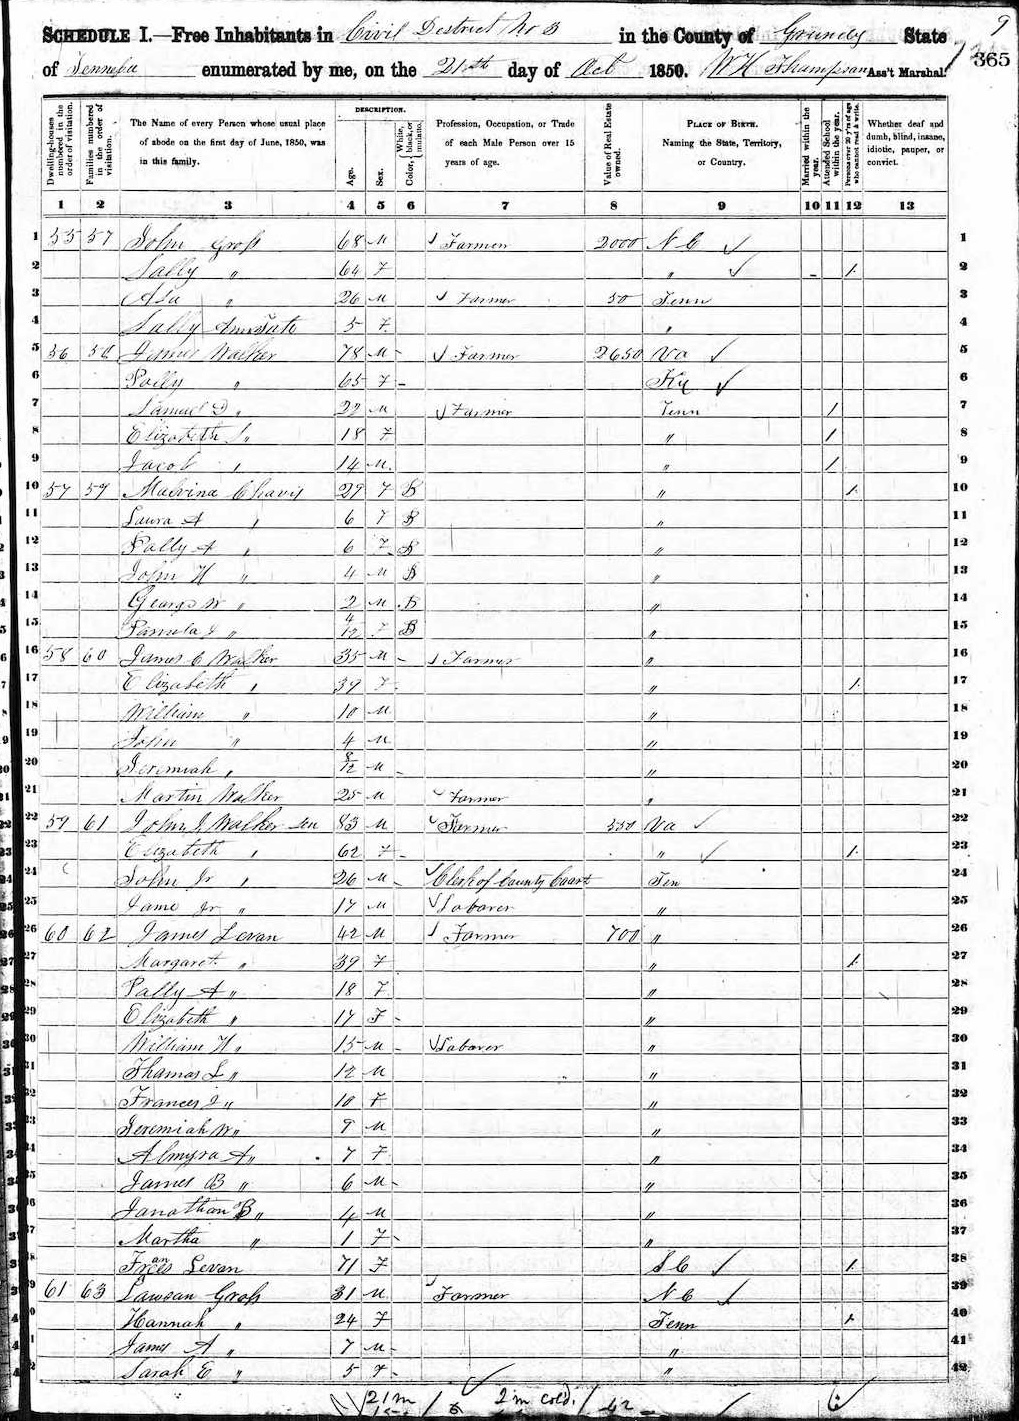 9
SCHEDULE I.—Free Inhabitants in Civil District No 3 in the County of Grundy State
of Tennessee enumerated by me, on the 21st day of Oct 1850. W H Thompson Ass't Marshal. 365
Dwelling-houses numbered in the order of visitation. Families numbered in the order of visitation. The Name of every Person whose usual place of abode on the first day of June, 1850, was in this family. DESCRIPTION. Age. Sex. Color, White, black, or mulatto. Profession, Occupation, or Trade of each Male Person over 15 years of age. Value of Real Estate owned. PLACE OF BIRTH. Naming the State, Territory, or Country. Married within the year. Attended School within the year. Persons over 20 y'rs of age who cannot read & write. Whether deaf and dumb, blind, insane, idiotic, pauper, or convict.
1 2 3 4 5 6 7 8 9 10 11 12 13
1 55 57 John Gross 68 M Farmer 2000 N C 1
2 Sally " 64 F " 1 2
3 Asa " 26 M Farmer 50 Tenn 3
4 Sally Ann Tate 5 F " 4
5 56 58 James Walker 78 M Farmer 2650 Va 5
6 Polly " 65 F Ky 6
7 Samuel D " 22 M Farmer Tenn 1 7
8 Elizabeth " 18 F " 1 8
9 Jacob " 14 M " 1 9
10 57 59 Malvina Chavis 29 F B " 1 10
11 Laura A " 6 F B " 11
12 Sally A " 6 F B " 12
13 John H " 4 M B " 13
14 George W " 2 M B " 14
15 Pamela J " 4/12 F B " 15
16 58 60 James C Walker 35 M Farmer " 16
17 Elizabeth " 39 F " 1 17
18 William " 10 M " 18
19 John " 4 M " 19
20 Jeremiah " 8/12 M " 20
21 Martin Walker 25 M Farmer " 21
22 59 61 John J Walker Sen 83 M Farmer 550 Va 22
23 Elizabeth " 62 F " 1 23
24 John Jr " 26 M Clerk of County Court Ten 24
25 Jame Jr " 17 M Laborer " 25
26 60 62 James Levan 42 M Farmer 700 " 26
27 Margaret " 39 F " 1 27
28 Sally A " 18 F " 28
29 Elizabeth " 17 F " 29
30 William H " 15 M Laborer " 30
31 Thomas L " 12 M " 31
32 Frances J " 10 F " 32
33 Jeremiah W " 9 M " 33
34 Almyra A " 7 F " 34
35 James B " 6 M " 35
36 Jonathan B " 4 M " 36
37 Martha " 1 F " 37
38 Frances Levan 71 F S C 1 38
39 61 63 Lawson Gross 31 M Farmer N C 39
40 Hannah " 24 F Tenn 1 40
41 James A " 7 M " 41
42 Sarah E " 5 F " 42
21 m 2 m cold. 42